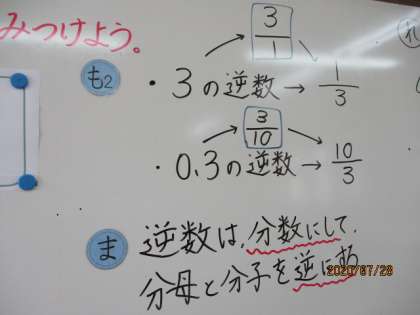 みつけよう。
3
1
も2
・3の逆数→
1
3
3
10
・0.3の逆数→
10
3
ま
逆数は、分数にして、
分母と分子を逆にする
2020/07/28